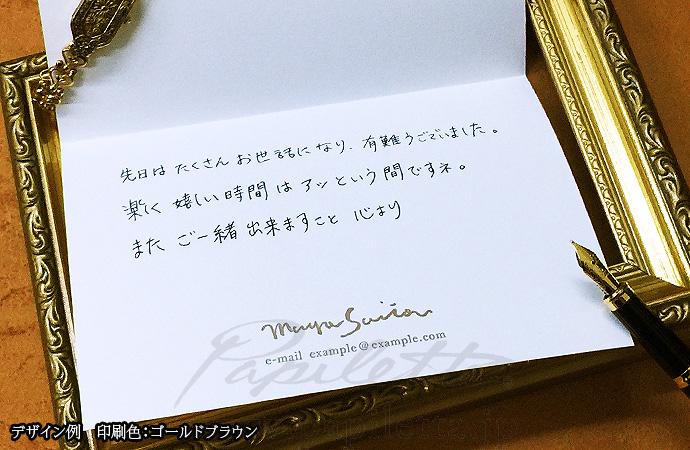 先日は たくさん お世話になり、有難うございました。
楽しく 嬉しい 時間は アッという間ですネ。
また ご一緒 出来ますこと 心より
Mayu Saito
e-mail example@example.com
Papiletta
デザイン例 印刷色：ゴールドブラウン